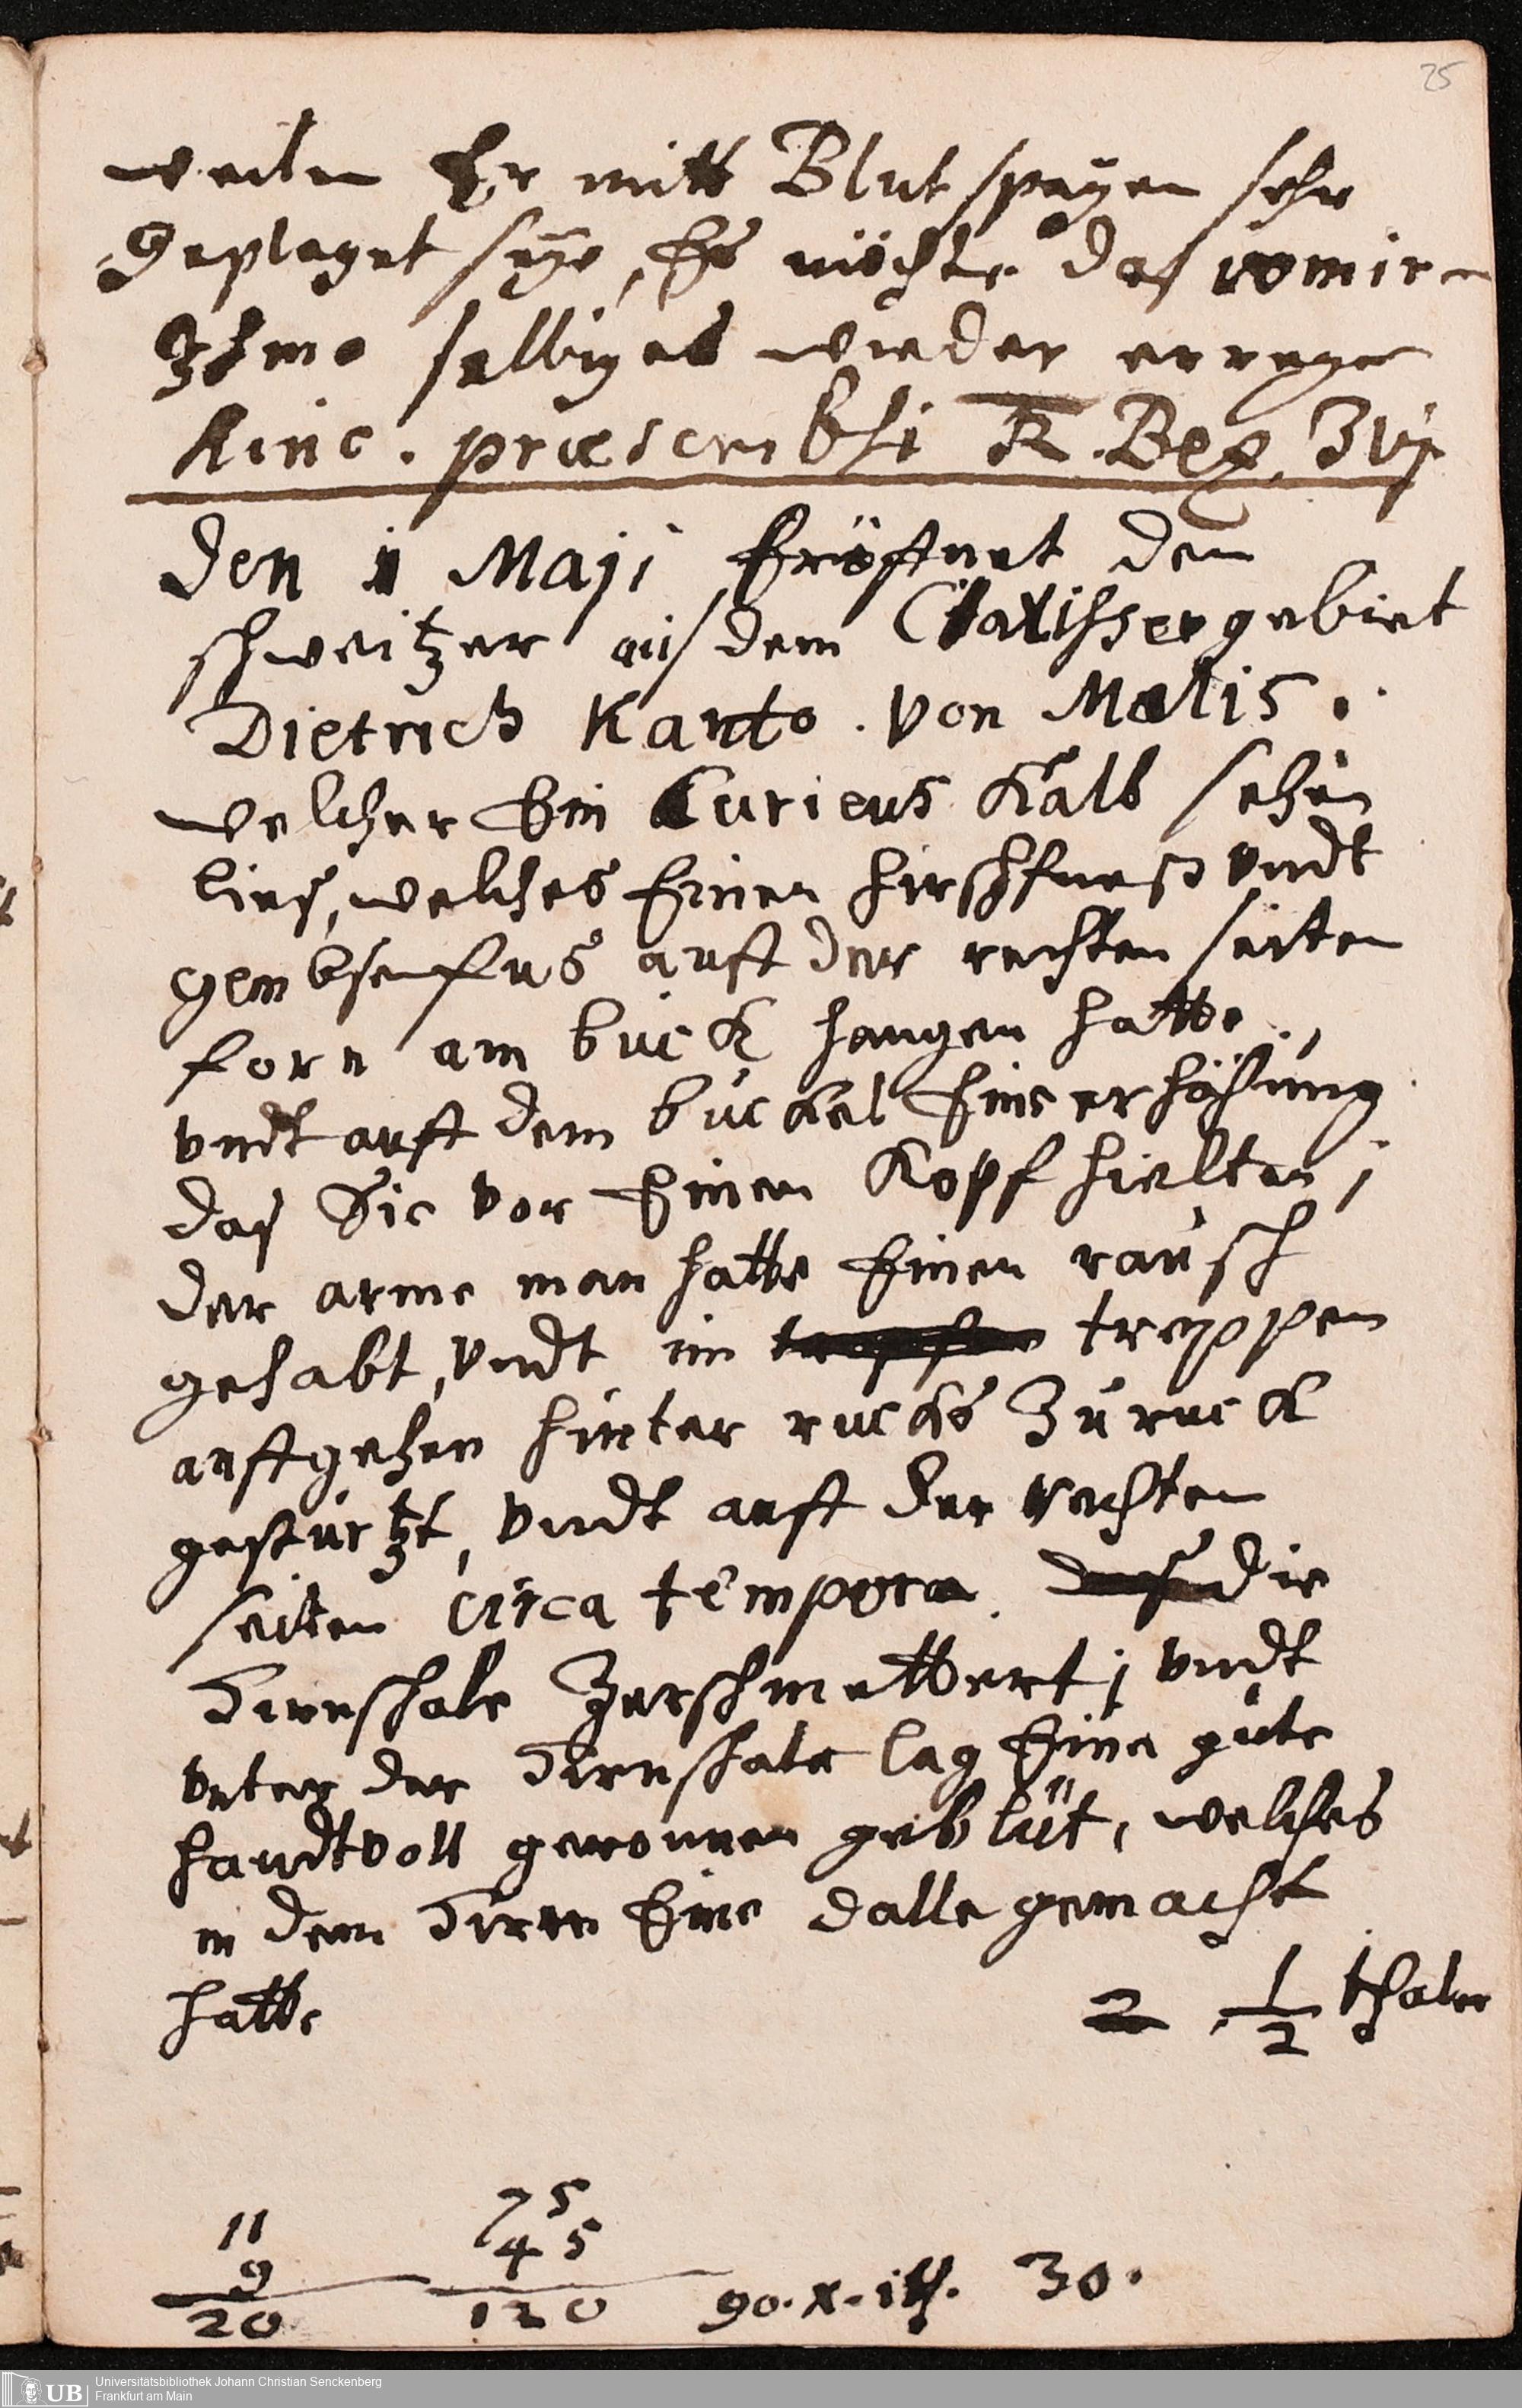 25
weilen Er mitt Blut speyen sehr
Geplaget seye, Es möchte das vomiren
Ihme selbiges wieder erregen
hinc. præscribsi ℞. Bez. ʒvj
den 1 Maji Eröffnet den
schweitzer aus dem gebiet
Dietrich Kanto. von Malis.
welcher Ein Curieus Kalb sehen
lies, welches Einen hirschfues vndt
gembsenfus auff der rechten seiten
forn am buck hangen hatte,
vndt auff dem buckel Eine erhöhung
das Sie vor Einen Kopf hielten;
der arme man hatte Einen rausch
gehabt, vndt im treppen
auffgehen hinter rucks Zuruck
gesturtzt, vndt auff der rechten
seiten circa tempora. die
Hirnschale Zerschmettert; vndt
vnter der Hirnschale lag Eine gute
handtvoll geronnen geblüt, welches
in dem Hirn Eine dalle gemacht
hatte
2 1/2 thaler
11 75
9 45
20 120 90. x. 1th. 30.
UB Universitätsbibliothek Johann Christian Senckenberg
Frankfurt am Main